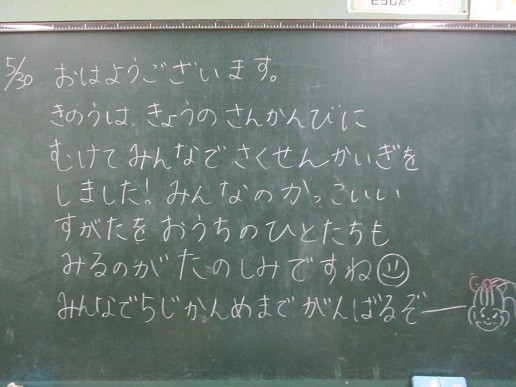 5/30 おはようございます。
きのうは、きょうの さんかんびに
むけて みんなで さくせんかいぎを
しました! みんなの かっこいい
すがたを おうちの ひとたちも
みるのが たのしみですね
みんなで 5じかんめまで がんばるぞー